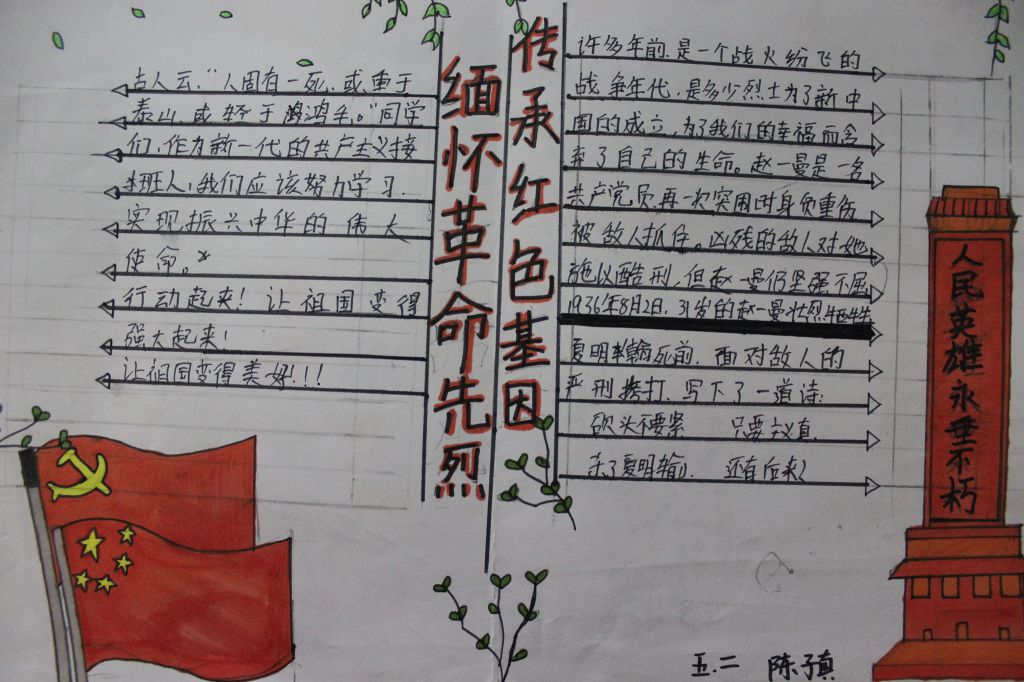 缅怀革命先烈
传承红色基因
古人云:"人固有一死,或重于
泰山,或轻于鸿毛。"同学
们,作为新一代的共产主义接
班人,我们应该努力学习
实现振兴中华的伟大
使命。
行动起来!让祖国变得
强大起来!
让祖国变得美好!!!
许多年前,是一个战火纷飞的
战争年代,是多少烈士为了新中
国的成立,为了我们的幸福而舍
弃了自己的生命。赵一曼是一名
共产党员,再一次突围时身负重伤
被敌人抓住。凶残的敌人对她
施以酷刑,但赵一曼仍坚强不屈
1936年8月2日,31岁的赵一曼壮烈牺牲
夏明翰死前,面对敌人的
严刑拷打,写下了一道诗:
砍头不要紧 只要主义真
杀了夏明翰 还有后来人
人民英雄永垂不朽
五.二 陈子真